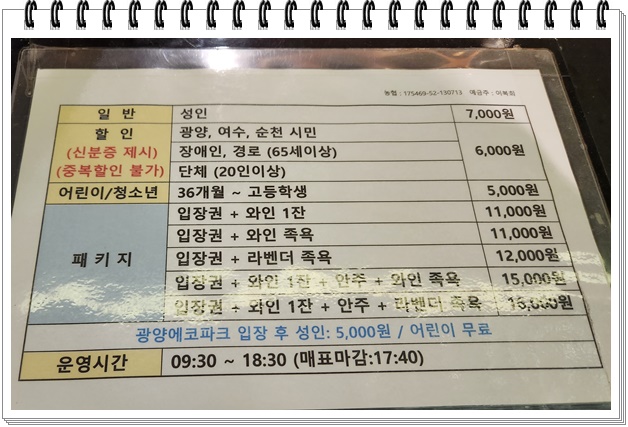 농협 : 175469-52-130713 예금주 : 이복희
일 반 성인 7,000원
할 인 광양, 여수, 순천 시민
(신분증 제시) 장애인, 경로 (65세이상) 6,000원
(중복할인 불가) 단체 (20인이상)
어린이/청소년 36개월 ~ 고등학생 5,000원
입장권 + 와인 1잔 11,000원
입장권 + 와인 족욕 11,000원
패 키 지 입장권 + 라벤더 족욕 12,000원
입장권 + 와인 1잔 + 안주 + 와인 족욕 15,000원
입장권 + 와인 1잔 + 안주 + 라벤더 족욕
광양에코파크 입장 후 성인: 5,000원 / 어린이 무료
운영시간 09:30 ~ 18:30 (매표마감:17:40)